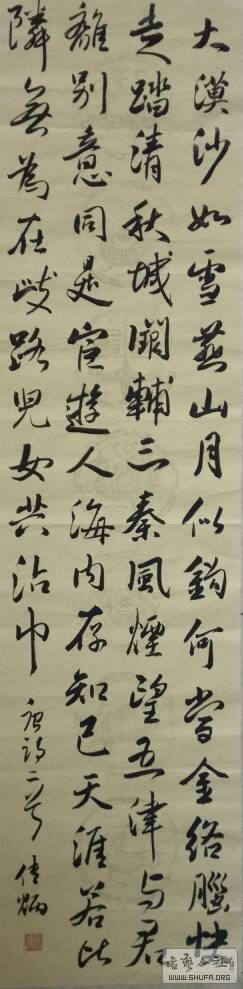 大漠沙如雪燕山月似鉤何當金絡腦快
走踏清秋城闕輔三秦風煙望五津与君
離別意同是宦遊人海内存知己天涯若比
隣無為在歧路兒女共沾巾
唐詩二首 炳
書藝公社
WWW.SHUFA.ORG